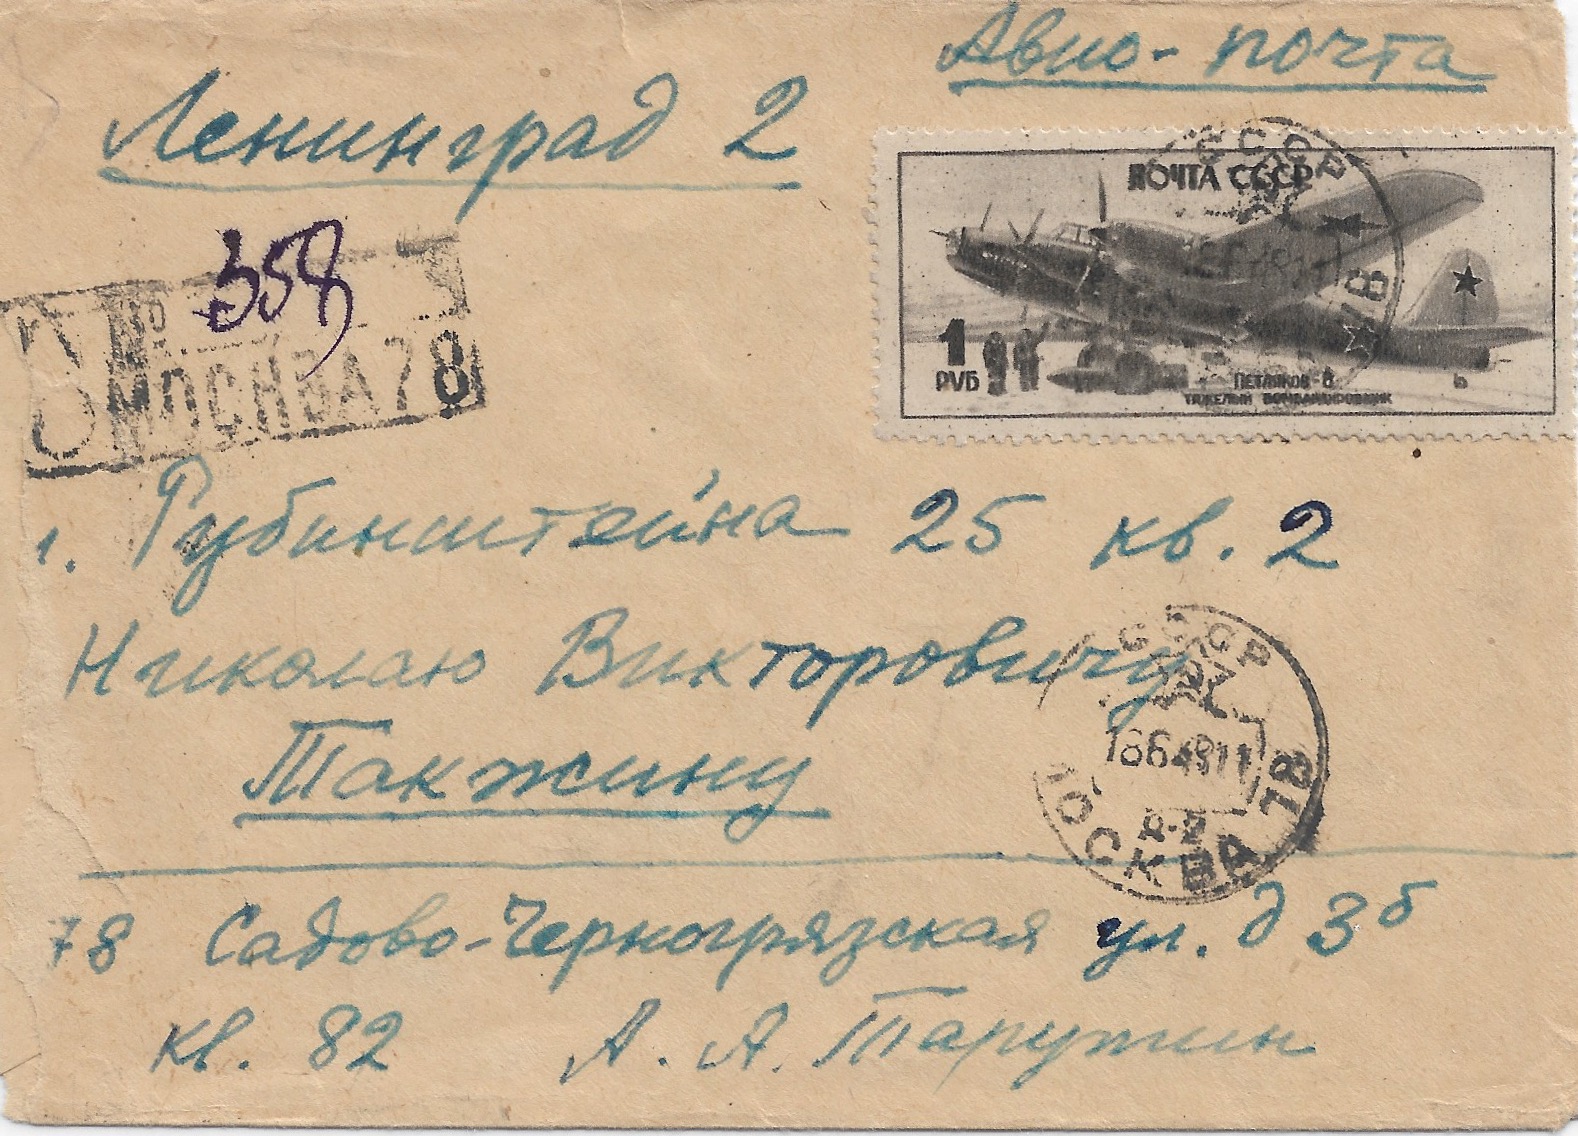 Авио-почта
Ленинград 2
ПОЧТА СССР
№ 358
З МОСКВА 78
1
РУБ
ПЕТЛЯКОВ-8
ТЯЖЕЛЫЙ БОМБАРДИРОВЩИК
СССР
Рубинштейна 25 кв. 2
Николаю Викторовичу
Такжину
СССР
МОСКВА
78 Садово-Черногрязская ул. д 3б
кв. 82 А. А. Таружин